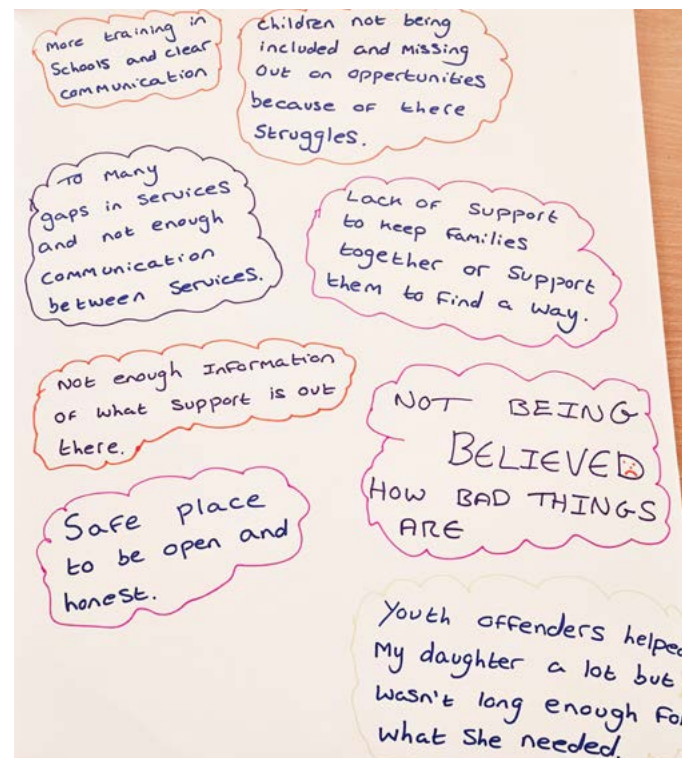 More training in
Schools and clear
communication
children not being
included and missing
out on oppertunities
because of there
Struggles.
To Many
gaps in services
and not enough
communication
between services.
Lack of support
to keep families
together or support
them to find a way.
Not enough Information
of what support is out
there.
NOT BEING
BELIEVED
HOW BAD THINGS
ARE
Safe place
to be open and
honest.
Youth offenders helped
My daughter a lot but
wasn't long enough for
what she needed.